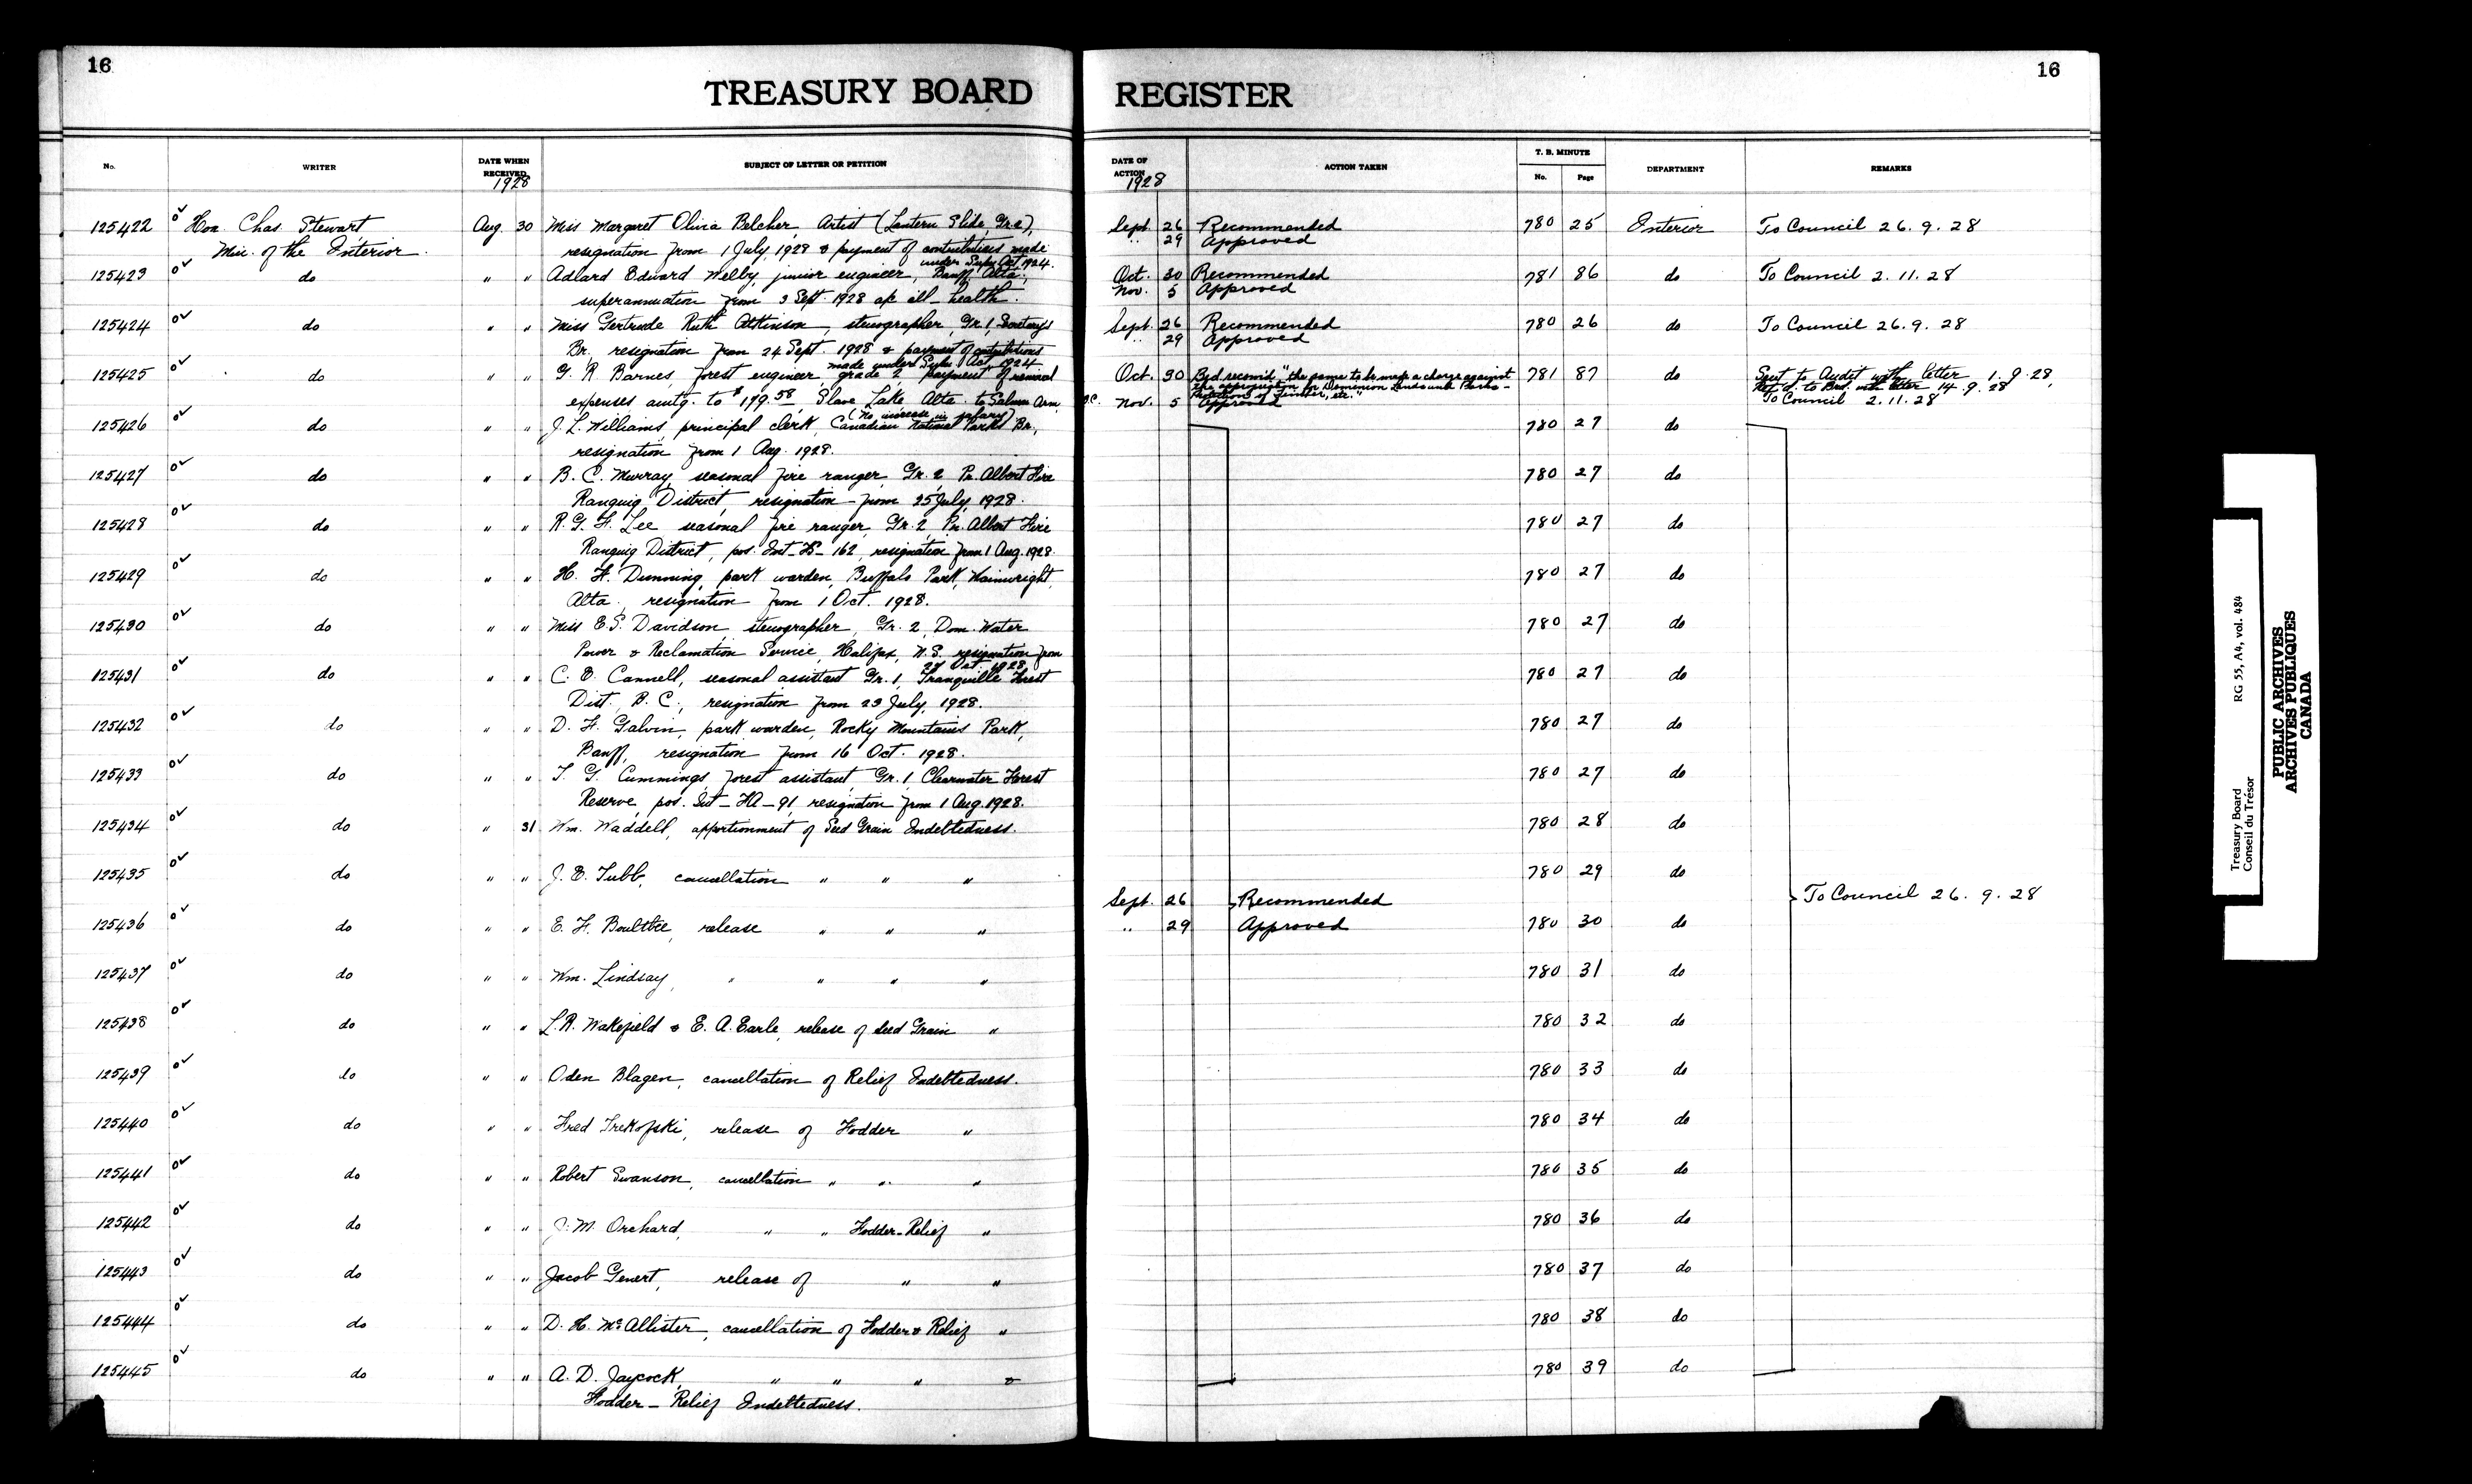 16
TREASURY BOARD
REGISTER
16
No.
WRITER
DATE WHEN RECEIVED
1928
SUBJECT OF LETTER OR PETITION
DATE OF ACTION
1928
ACTION TAKEN
T. B. MINUTE
No.
Page
DEPARTMENT
REMARKS
125422 Hon. Chas. Stewart Aug. 30 Miss Margaret Olivia Belcher, Artist (Lantern Slide, Gr. 2), Sept. 26 Recommended 780 25 Interior To Council 26. 9. 28
Min. of the Interior. resignation from 1 July 1928 & payment of contributions made under Supn Act 1924. " 29 Approved
125423 do " " Adlard Edward Welby, junior engineer, Banff, Alta., Oct. 30 Recommended 781 86 do To Council 2. 11. 28
superannuation from 3 Sept. 1928 a/c ill-health. Nov. 5 Approved
125424 do " " Miss Gertrude Ruth Attinson, stenographer, Gr. 1, Secretary's Sept. 26 Recommended 780 26 do To Council 26. 9. 28
Br., resignation from 24 Sept. 1928 & payment of contributions made under Supn Act 1924 " 29 Approved
125425 do " " G. R. Barnes, forest engineer, grade 2, payment of removal Oct. 30 Brd recomd. "the same to be made a charge against 781 87 do Sent to Audit with letter 1. 9. 28,
the appropriation for Dominion Lands and Parks - Ret'd. to Brd. with letter 14. 9. 28,
expenses amtg. to $179.58, Slave Lake, Alta. to Salmon Arm, B.C. Protection of Timber, etc."
(no increase in salary) Nov. 5 Approved To Council 2. 11. 28
125426 do " " J. L. Williams, principal clerk, Canadian National Parks Br., 780 27 do
resignation from 1 Aug. 1928.
125427 do " " B. C. Murray, seasonal fire ranger, Gr. 2, Pr. Albert Fire 780 27 do
Ranging District, resignation from 25 July, 1928.
125428 do " " R. G. F. Lee seasonal fire ranger, Gr. 2, Pr. Albert Fire 780 27 do
Ranging District, pos. Int- - 162, resignation from 1 Aug. 1928.
125429 do " " H. F. Dunning, park warden, Buffalo Park, Wainwright, 780 27 do
Alta., resignation from 1 Oct. 1928.
125430 do " " Miss E. S. Davidson, stenographer, Gr. 2, Dom. Water 780 27 do
Power & Reclamation Service, Halifax, N.S. resignation from Oct. 1928,
125431 do " " C. E. Cannell, seasonal assistant Gr. 1, Tranquille Forest 780 27 do
Dist., B. C., resignation from 23 July, 1928.
125432 do " " D. F. Galvin, park warden, Rocky Mountains Park, 780 27 do
Banff, resignation from 16 Oct. 1928.
125433 do " " T. G. Cummings, forest assistant, Gr. 1, Clearwater Forest 780 27 do
Reserve, pos. Int - FA - 91, resignation from 1 Aug. 1928.
125434 do " 31 Wm. Waddell, apportionment of Seed Grain Indebtedness. 780 28 do
125435 do " " J. E. Tubb, cancellation " " " 780 29 do
Sept. 26 Recommended To Council 26. 9. 28
125436 do " " E. F. Boultbee, release " " " " 29 Approved 780 30 do
125437 do " " Wm. Lindsay, " " " " 780 31 do
125438 do " " L. R. Wakefield & E. A. Earle, release of Seed Grain " 780 32 do
125439 do " " Oden Blagen, cancellation of Relief Indebtedness. 780 33 do
125440 do " " Fred Trekofski, release of Fodder " 780 34 do
125441 do " " Robert Swanson, cancellation " " " 780 35 do
125442 do " " J. M. Orchard, " " Fodder-Relief " 780 36 do
125443 do " " Jacob Genert, release of " " 780 37 do
125444 do " " D. H. McAllister, cancellation of Fodder & Relief " 780 38 do
125445 do " " A. D. Jaycock, " " " & 780 39 do
Fodder - Relief Indebtedness.
Treasury Board RG 55, A4, vol. 484
Conseil du Trésor
PUBLIC ARCHIVES
ARCHIVES PUBLIQUES
CANADA